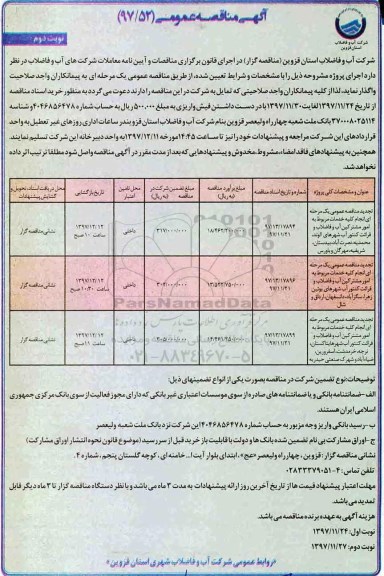 آگهی مناقصه عمومی (۹۷/۵۲)
نوبت دوم
شرکت آب و فاضلاب
استان قزوین
شرکت آب و فاضلاب استان قزوین (مناقصه گزار) در اجرای قانون برگزاری مناقصات و آیین نامه معاملات شرکت های آب و فاضلاب در نظر
دارد اجرای پروژه مشروحه ذیل را با مشخصات و شرایط تعیین شده، از طریق مناقصه عمومی یک مرحله ای به پیمانکاران واجد صلاحیت
واگذار نماید، لذا از کلیه پیمانکاران واجد صلاحیتی که تمایل به شرکت در این مناقصه را دارند دعوت می گردد به منظور خرید اسناد مناقصه
از تاریخ ۱۳۹۷/۱۱/۲۴ لغایت ۱۳۹۷/۱۱/۳۰ با در دست داشتن فیش واریزی به مبلغ ۵۰۰,۰۰۰ ریال به حساب شماره ۴۰۴۶۸۵۶۴۷۸ و شناسه
۳۷۰۰۰۸۰۲۵۱۱۴ بانک ملت شعبه چهارراه ولیعصر قزوین بنام شرکت آب و فاضلاب استان قزوین در ساعات اداری روزهای غیر تعطیل به واحد
قراردادهای این شرکت مراجعه و پیشنهادات خود را نیز تا ساعت ۱۴:۴۵ مورخه ۱۳۹۷/۱۲/۱۱ به واحد دبیرخانه این شرکت تسلیم نمایند.
همچنین به پیشنهادهای فاقد امضاء، مشروط، مخدوش و پیشنهادهایی که بعد از مدت مقرر در آگهی مناقصه واصل شود مطلقا ترتیب اثر داده
نخواهد شد.
عنوان و مشخصات کلی پروژه
شماره و تاریخ اسناد مناقصه
مبلغ برآورد مناقصه (به ریال)
مبلغ تضمین شرکت در مناقصه (به ریال)
محل تامین اعتبار
تاریخ بازگشایی
محل دریافت اسناد، تحویل و گشایش پیشنهادات
تجدید مناقصه عمومی یک مرحله
ای انجام کلیه خدمات مربوط به
امور مشترکین آب و فاضلاب و
قرائت کنتور آب شهرهای الوند،
داخلی
۱۳۹۷/۱۲/۱۲
ساعت ۱۰ صبح
نشانی مناقصه گزار
تجدید مناقصه عمومی یک مرحله
ای انجام کلیه خدمات مربوط به
امور مشترکین آب و فاضلاب و
قرائت کنتور آب شهرهای بوئین
داخلی
۱۳۹۷/۱۲/۱۲
ساعت ۱۰:۳۰ صبح
نشانی مناقصه گزار
تجدید مناقصه عمومی یک مرحله
ای انجام کلیه خدمات مربوط به
امور مشترکین آب و فاضلاب و
داخلی
۱۳۹۷/۱۲/۱۲
ساعت ۱۱ صبح
نشانی مناقصه گزار
ParsNamadData
۰۲۱-۸۸۳۴۹۶۷۰-۵
توضیحات: نوع تضمین شرکت در مناقصه بصورت یکی از انواع تضمینهای ذیل:
الف - ضمانتنامه بانکی و یا ضمانتنامه های صادره از سوی موسسات اعتباری غیر بانکی که دارای مجوز فعالیت از سوی بانک مرکزی جمهوری
اسلامی ایران هستند.
ب - رسید بانکی واریز وجه مزبور به حساب شماره ۴۰۴۶۸۵۶۴۷۸ این شرکت نزد بانک ملت شعبه ولیعصر
ج - اوراق مشارکت بی نام تضمین شده بانک ها و دولت با قابلیت باز خرید قبل از سررسید (موضوع قانون نحوه انتشار اوراق مشارکت)
نشانی مناقصه گزار: قزوین، چهارراه ولیعصر «عج»، ابتدای بلوار آیت ا... خامنه ای، کوچه گلستان پنجم، شماره ۴.
تلفن تماس: ۴-۰۲۸۳۳۳۷۹۰۵۱
مهلت اعتبار پیشنهاد قیمت ها از تاریخ آخرین روز ارائه پیشنهادات به مدت ۳ ماه می باشد و با نظر دستگاه مناقصه گزار تا ۳ ماه دیگر قابل
تمدید می باشد.
هزینه آگهی به عهده برنده مناقصه می باشد.
نوبت اول: ۱۳۹۷/۱۱/۲۴
نوبت دوم: ۱۳۹۷/۱۱/۲۷
«روابط عمومی شرکت آب و فاضلاب شهری استان قزوین»